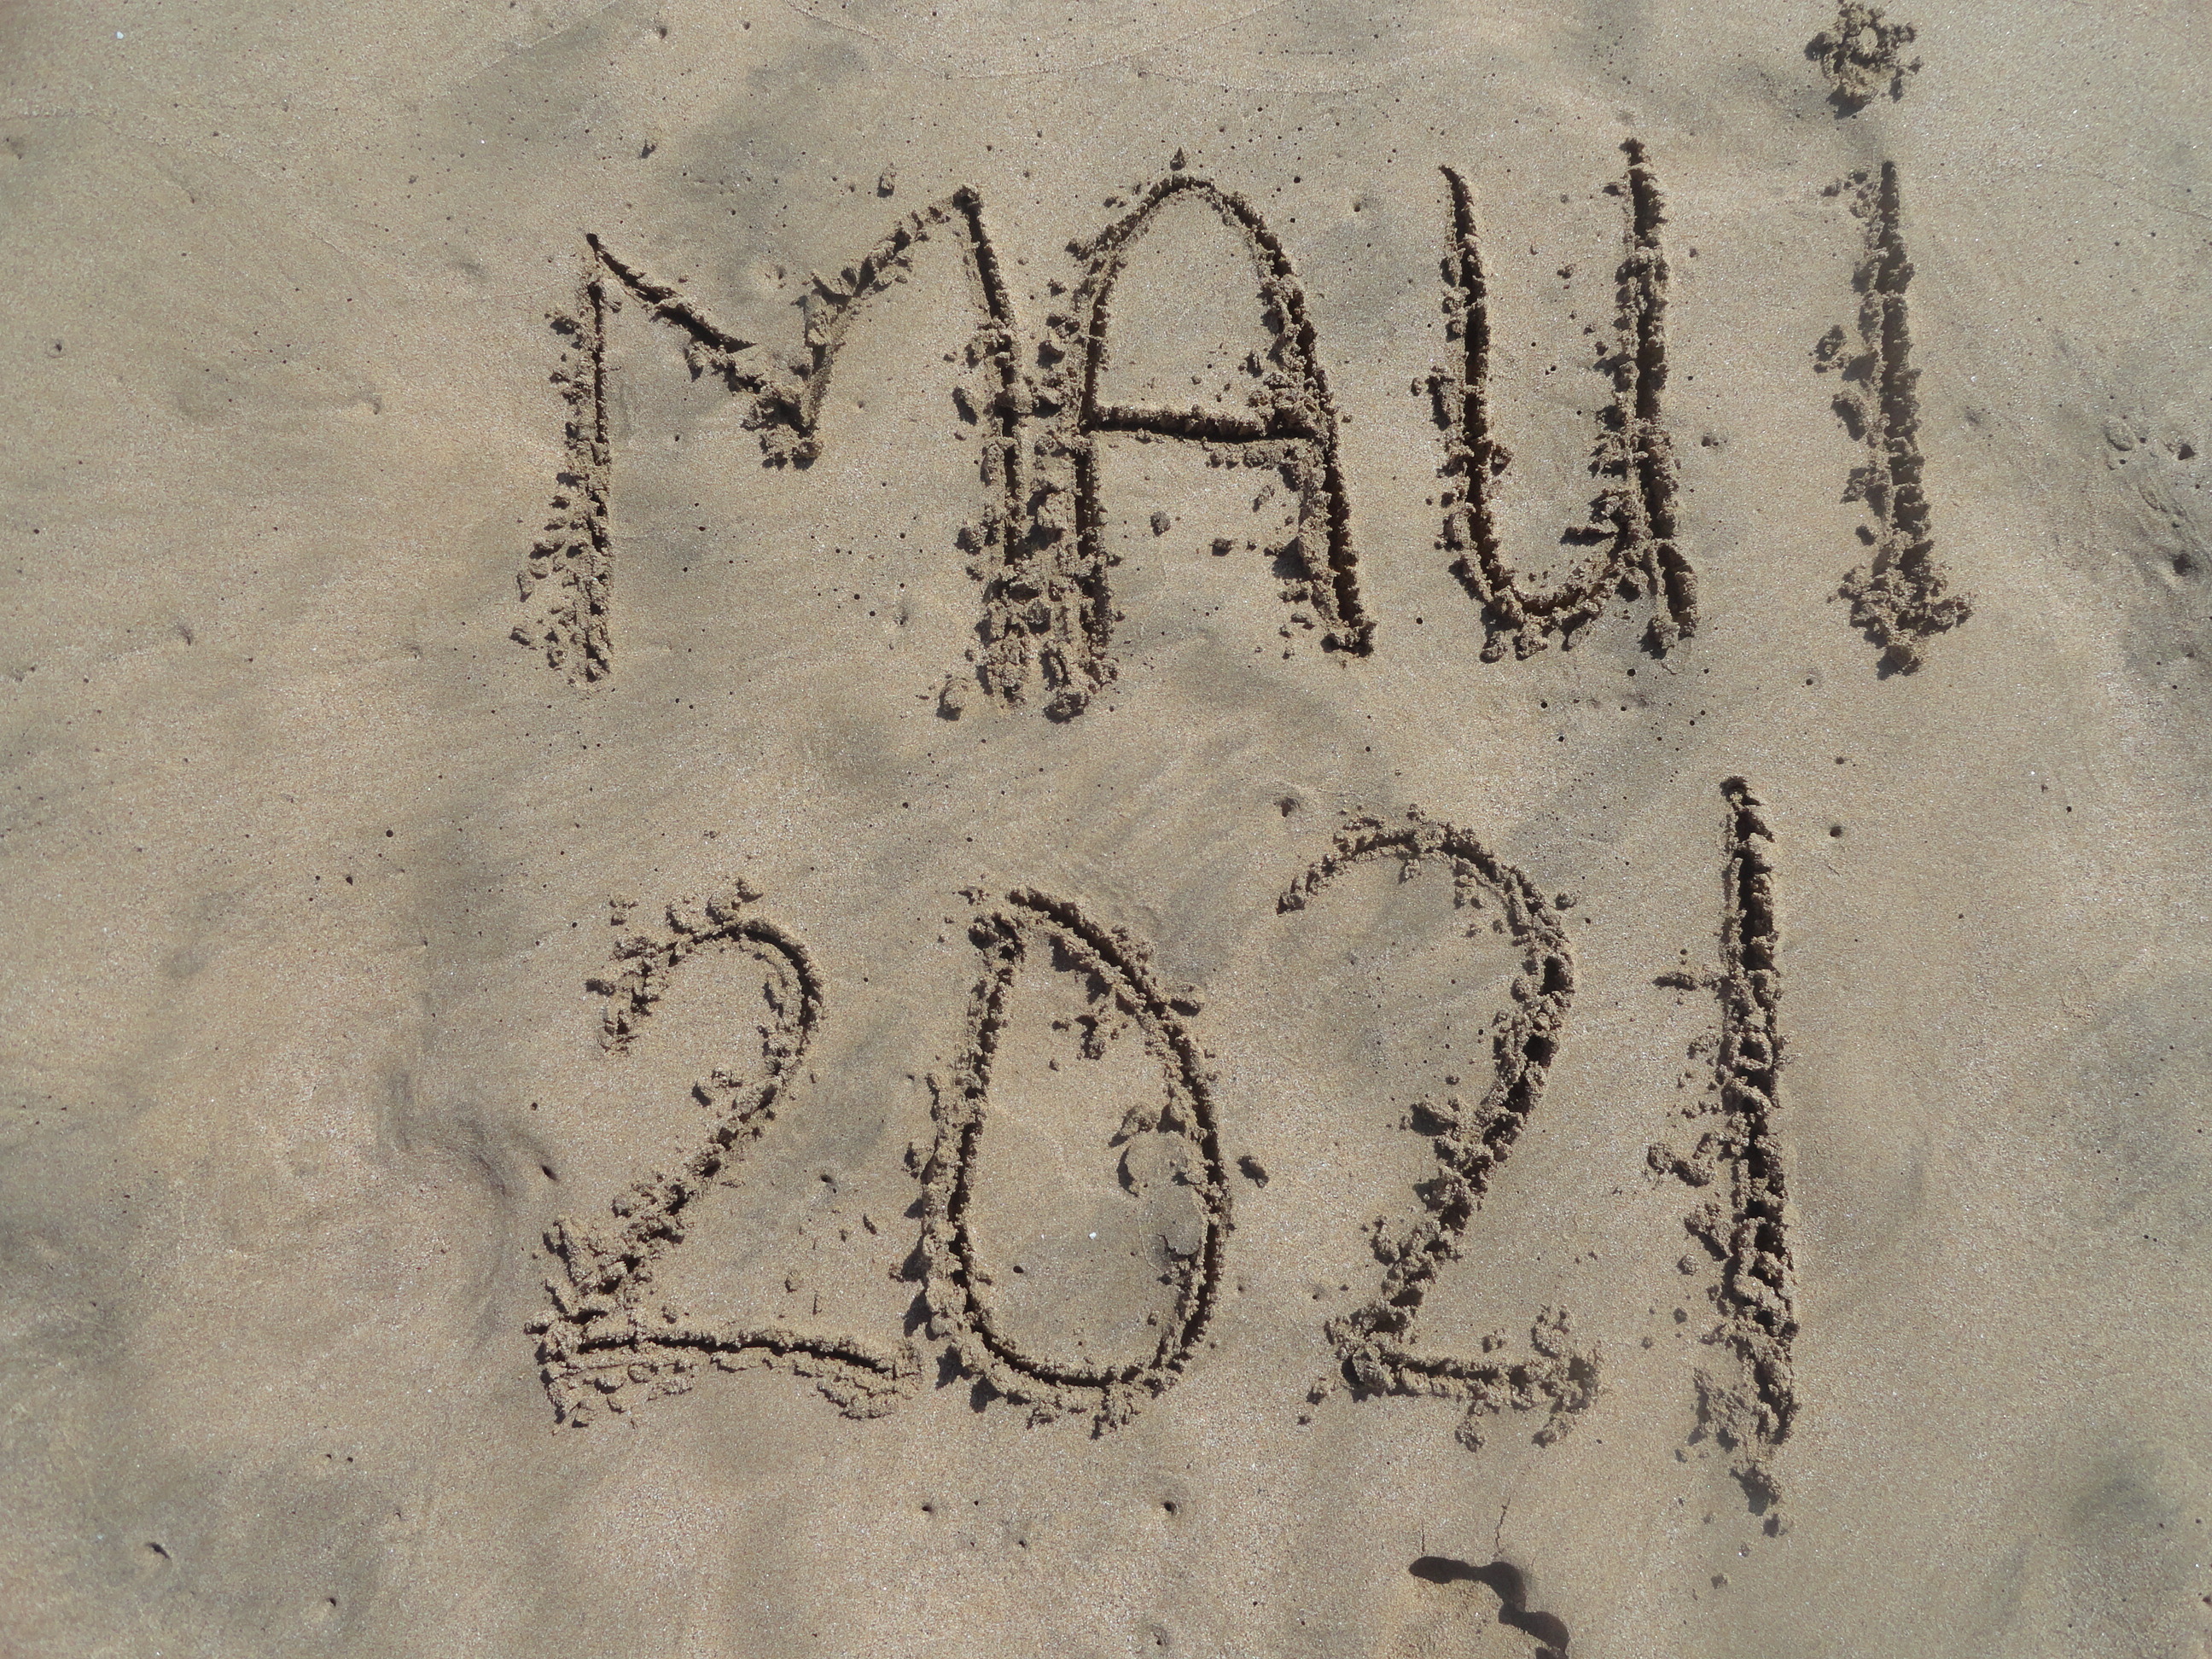 MAUi
2021